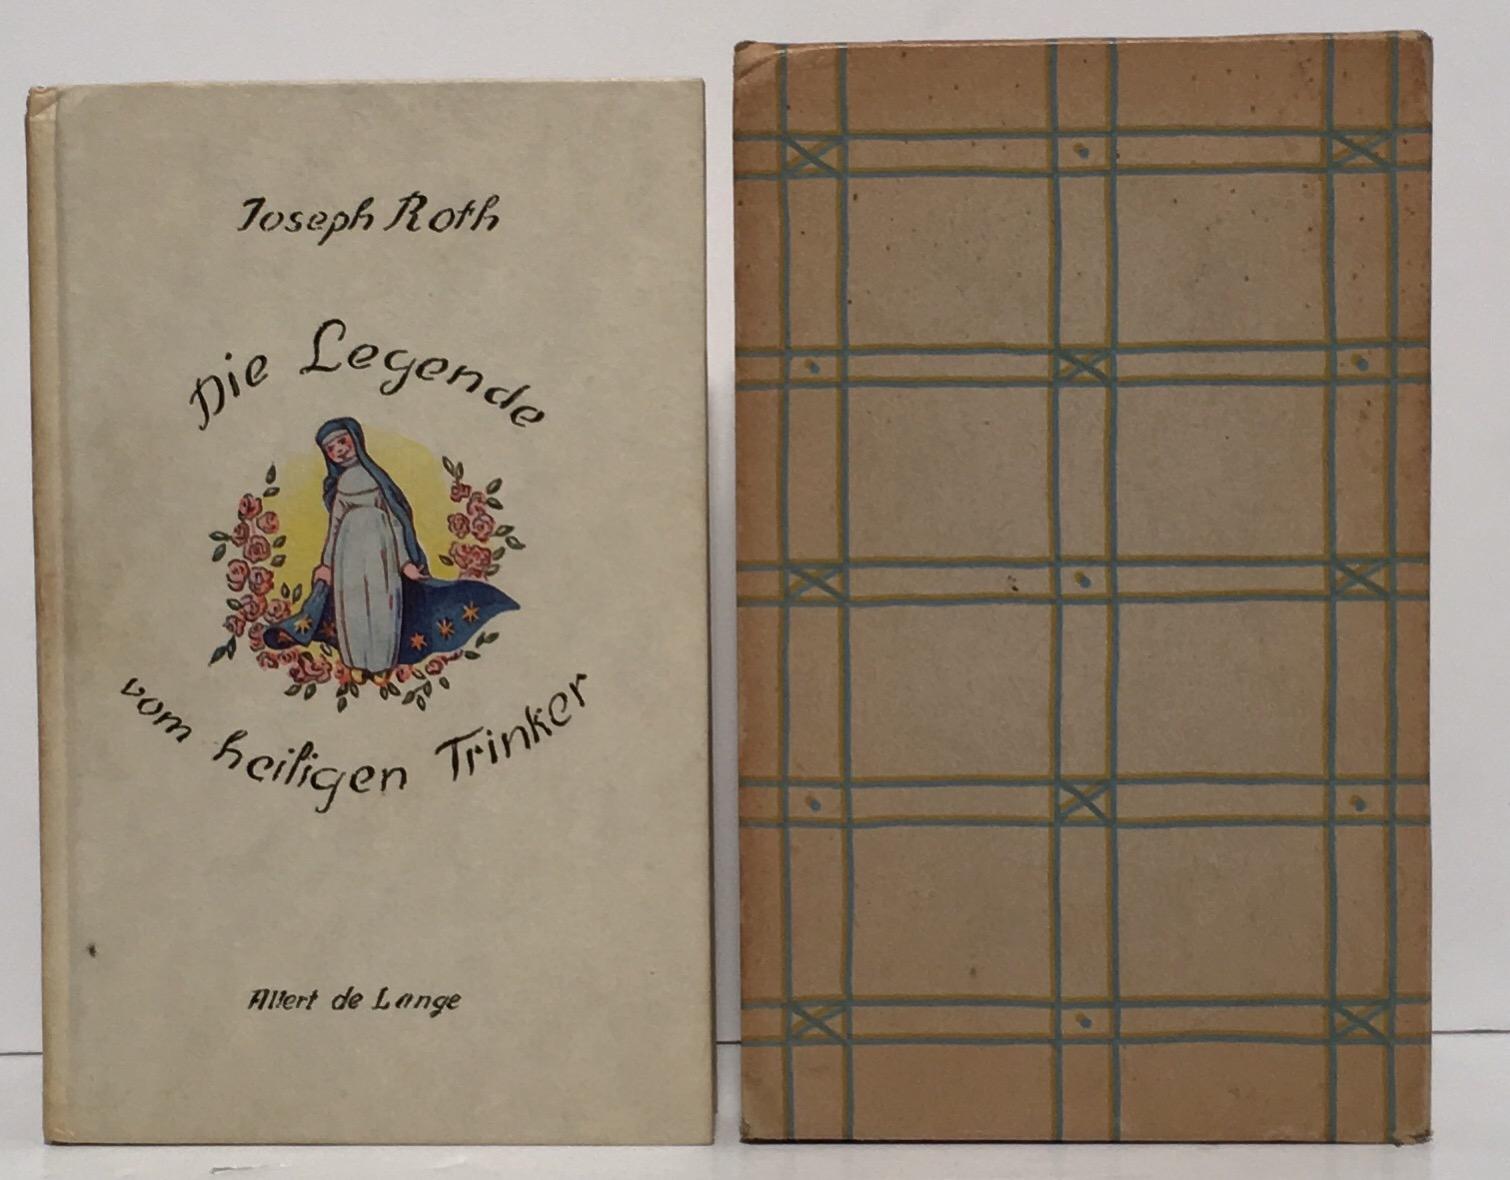 Joseph Roth
Die Legende
vom heiligen Trinker
Allert de Lange